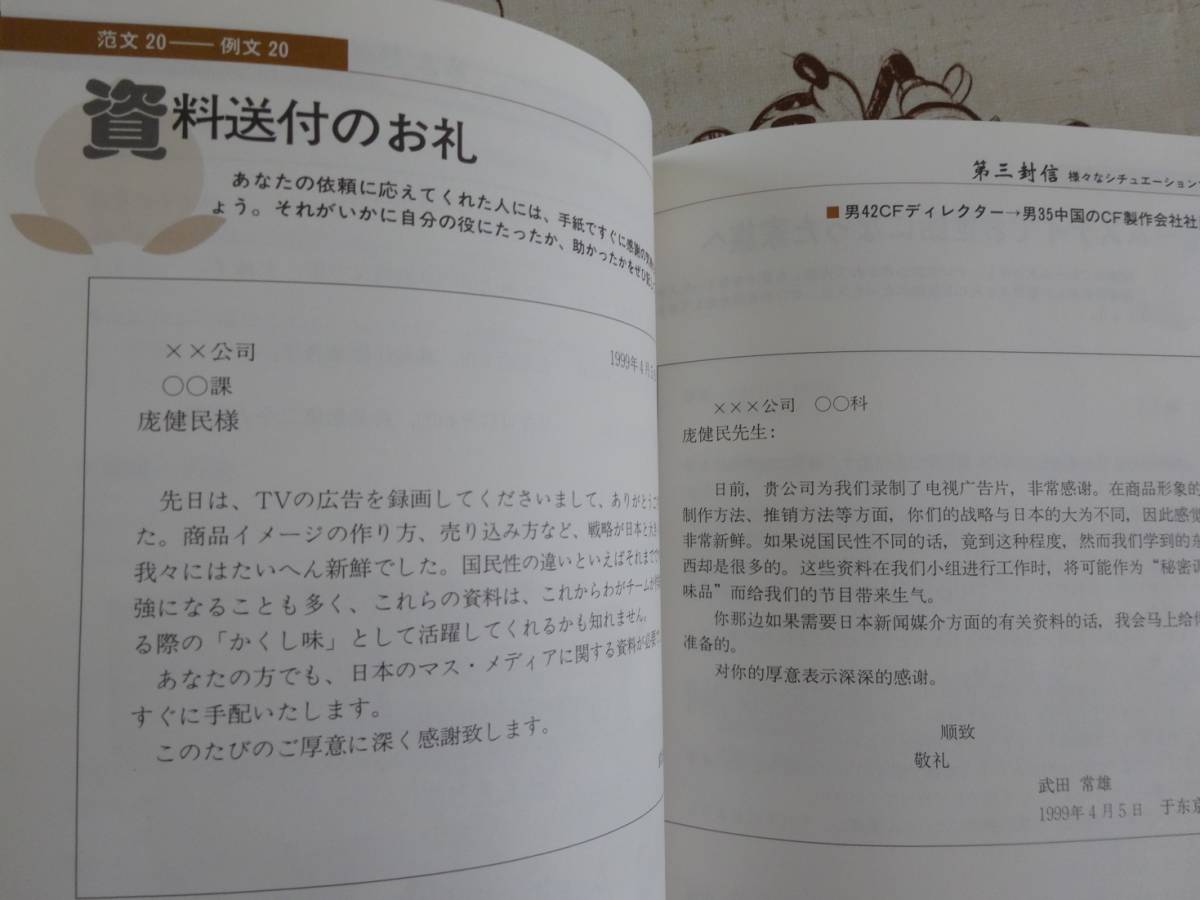 范文20——例文20
資料送付のお礼
あなたの依頼に応えてくれた人には、手紙ですぐに感謝の
ょう。それがいかに自分の役にたったか、助かったかをぜひ
××公司
1999年4月5
○○課
庞健民様
先日は、TVの広告を録画してくださいまして、ありがとうご
た。商品イメージの作り方、売り込み方など、戦略が日本と大
我々にはたいへん新鮮でした。国民性の違いといえばそれまで
強になることも多く、これらの資料は、これからわがチームが
る際の「かくし味」として活躍してくれるかも知れません。
あなたの方でも、日本のマス・メディアに関する資料が必要
すぐに手配いたします。
このたびのご厚意に深く感謝致します。
第三封信 様々なシチュエーション
■男42CFディレクター→男35中国のCF製作会社社
×××公司 ○○科
庞健民先生：
日前，贵公司为我们录制了电视广告片，非常感谢。在商品形象的
制作方法、推销方法等方面，你们的战略与日本的大为不同，因此感觉
非常新鲜。如果说国民性不同的话，竟到这种程度，然而我们学到的东
西却是很多的。这些资料在我们小组进行工作时，将可能作为“秘密调
味品”而给我们的节目带来生气。
你那边如果需要日本新闻媒介方面的有关资料的话，我会马上给你
准备的。
对你的厚意表示深深的感谢。
顺致
敬礼
武田 常雄
1999年4月5日 于东京